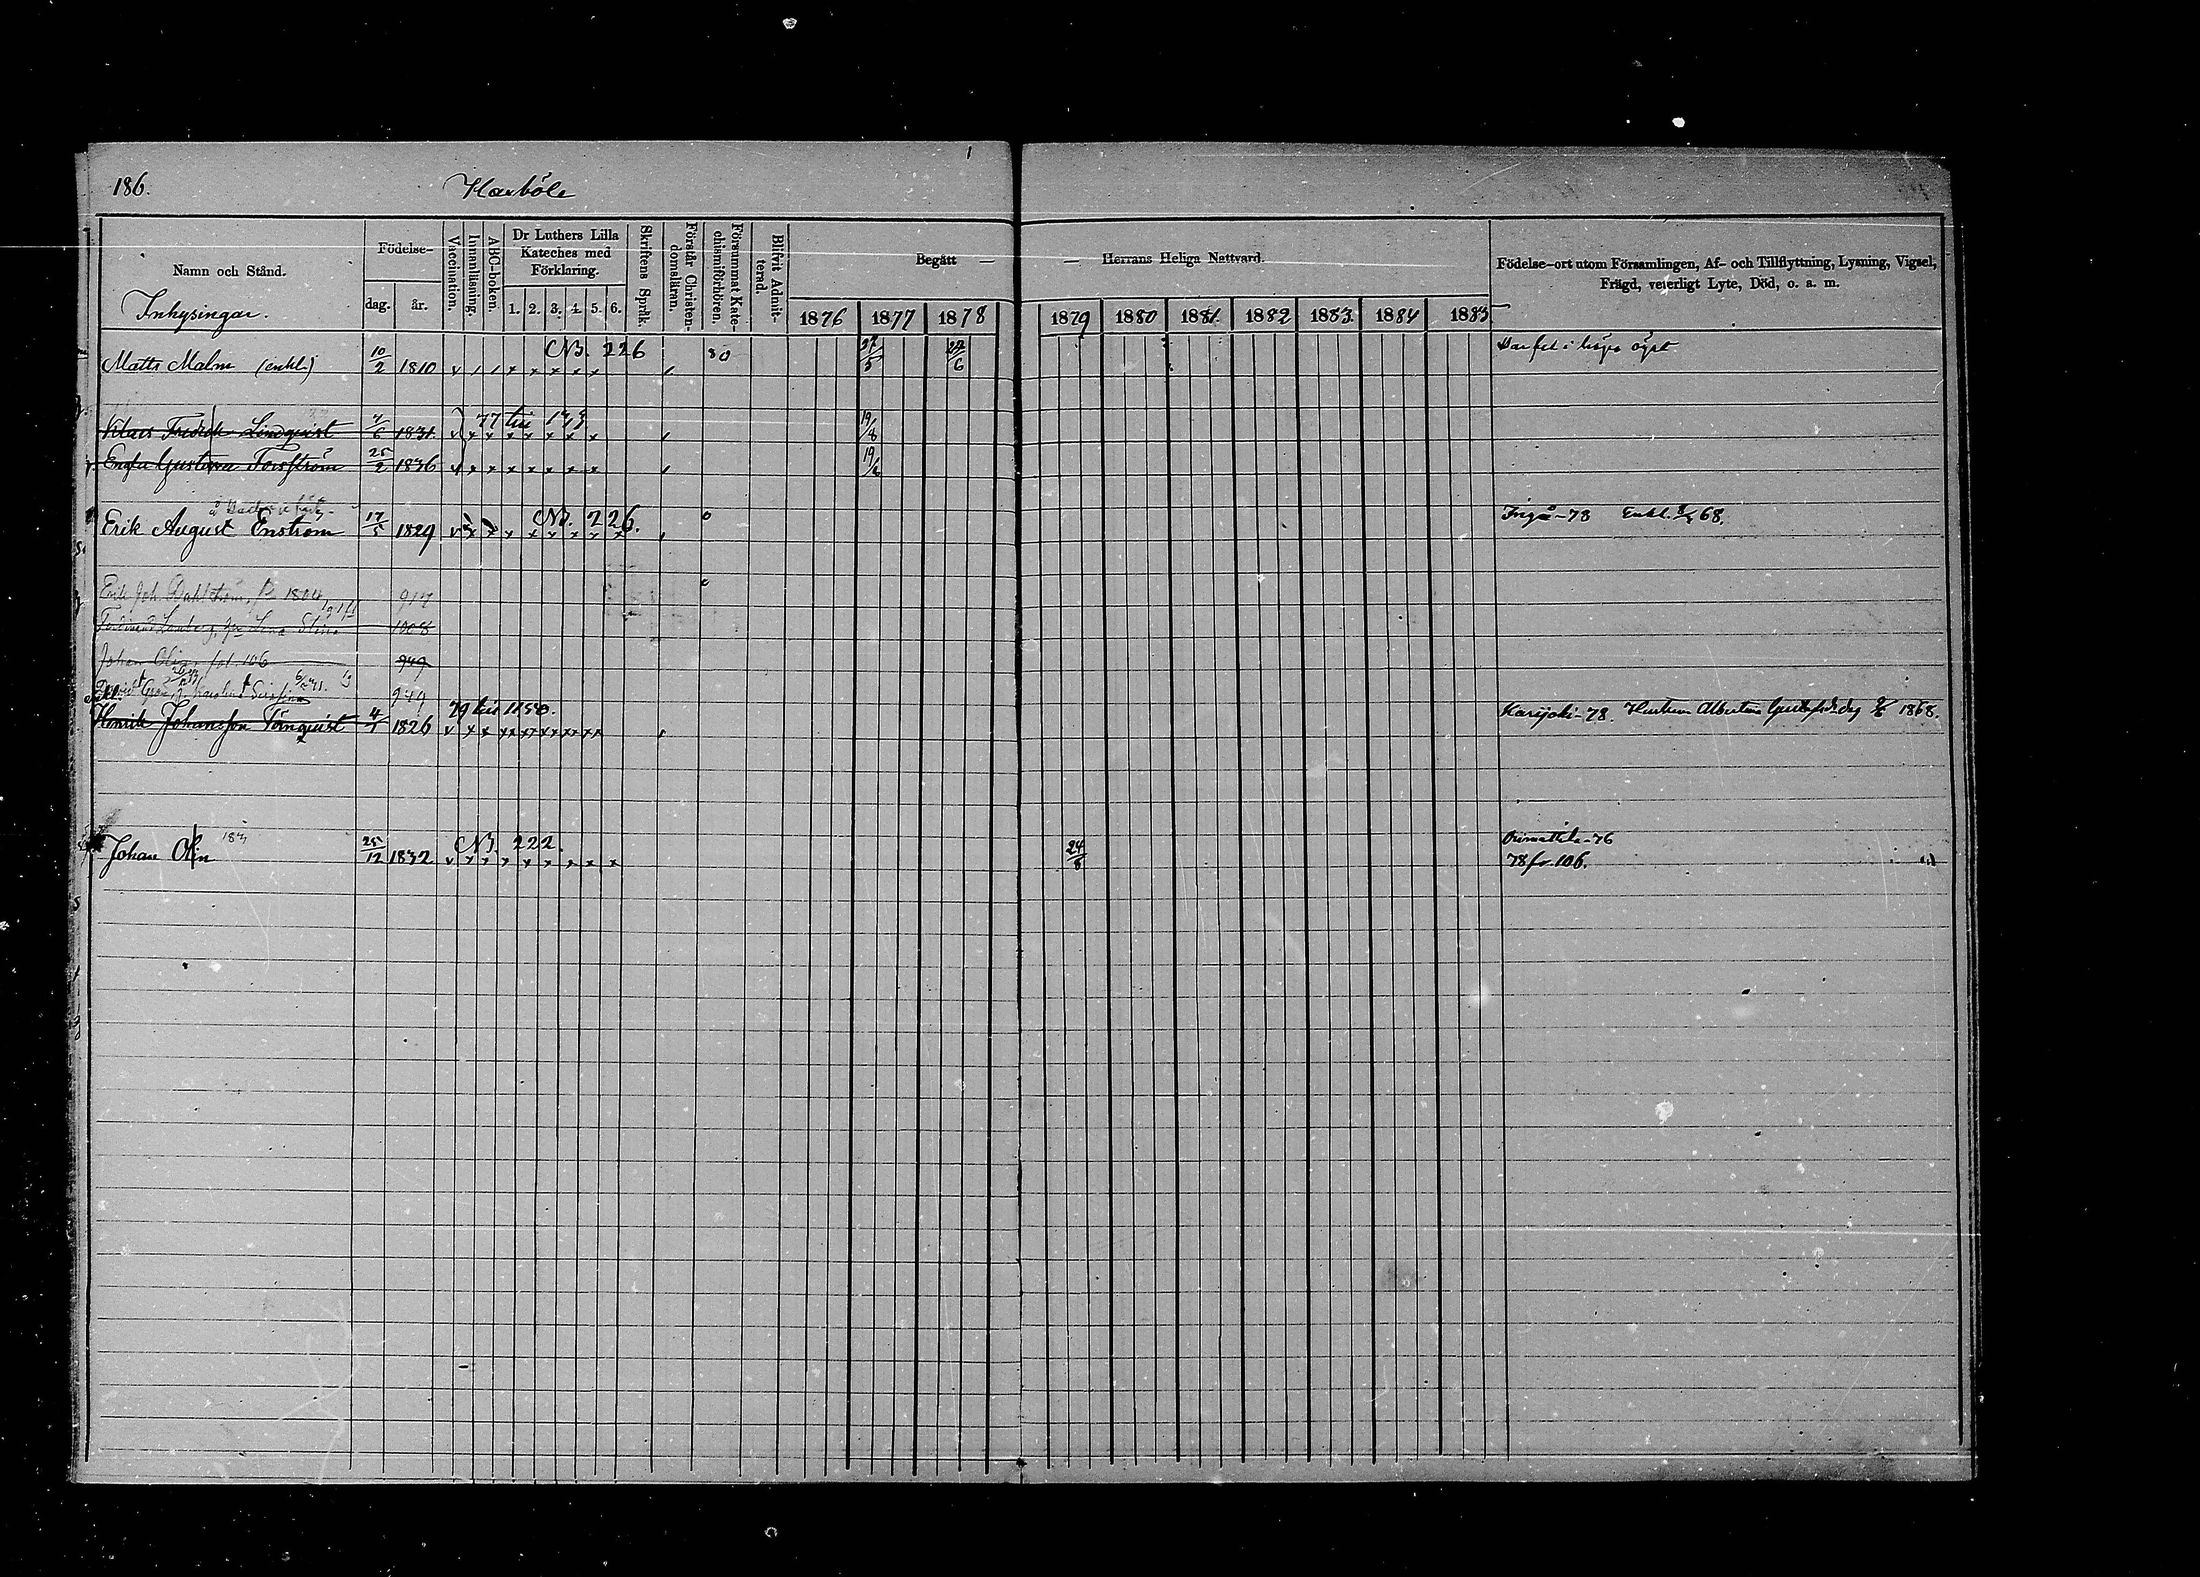 186.
Harböle
Namn och Stånd.
Inhysingar.
Födelse-
dag.
år.
Vaccination.
Innanläsning.
ABC-boken.
Dr Luthers Lilla Kateches med Förklaring.
1. 2. 3. 4. 5. 6.
Skriftens Språk.
Förstår Christendomsläran.
Försummat Katechismiförhören.
Blifvit Admitterad.
Begått — — Herrans Heliga Nattvard.
1876 1877 1878 1879 1880 1881 1882 1883 1884 1883
Födelse-ort utom Församlingen, Af- och Tillflyttning, Lysning, Vigsel,
Frägd, veterligt Lyte, Död, o. a. m.
NB. 226 80 27/5 27/6
Matts Malm (enkl.) 10/2 1810
77 19/8
Klaes Fredrik Lindquist 7/6 1831
Engla Gustava Forsström 25/2 1836 19/8
NB. 226.
Erik August Enström 17/5 1829 Ingå-78 Enkl. 68.
Erik Joh. Dahlström, 1804 917
Lena Stina 1008
Johan Olin, fol. 106 949
949
79 1150.
Henrik Johansson Törnquist 4/1 1826 Karijoki-78. Hustrun Albertina 1868.
Johan Olin 25/12 1832 NB. 222. 24/8 Orimattila-76
78 fr. 106.